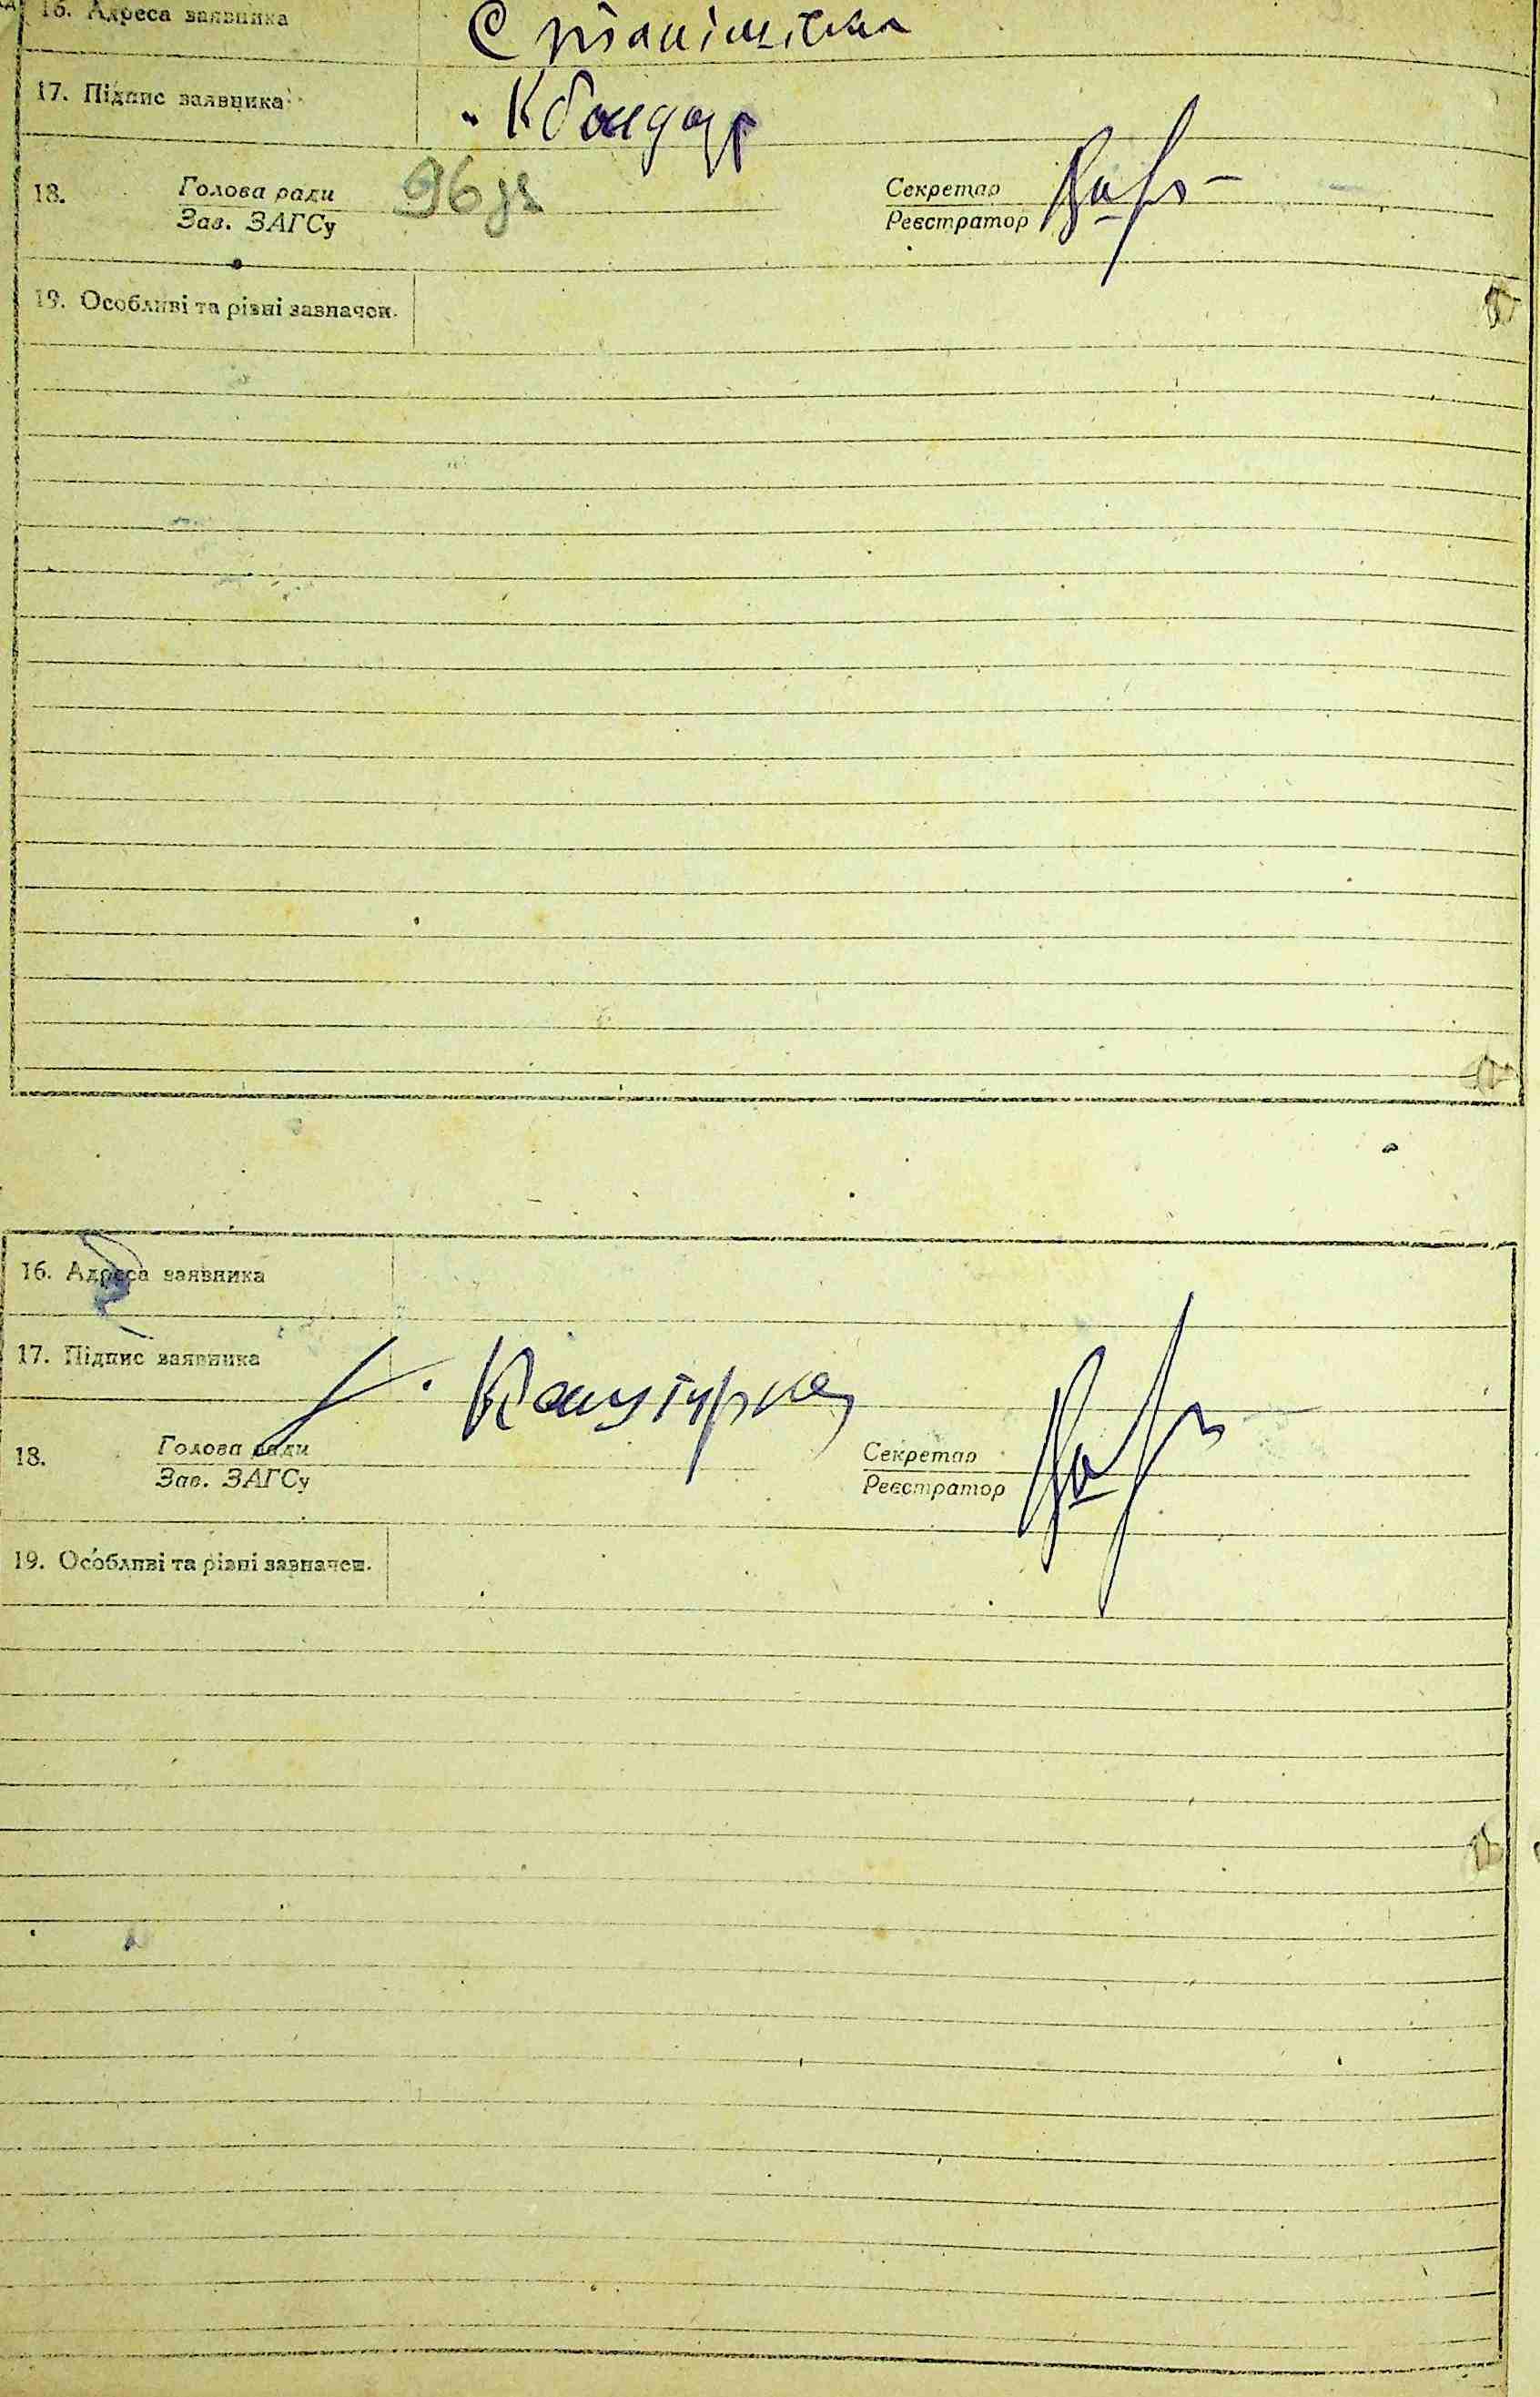 16. Адреса заявника
17. Підпис заявника К Бондар
18. Голова ради 96 Секретар
Зав. ЗАГСу Реєстратор
19. Особливі та різні зазначен.
16. Адреса заявника
17. Підпис заявника
18. Голова ради Секретар
Зав. ЗАГСу Реєстратор
19. Особливі та різні зазначен.